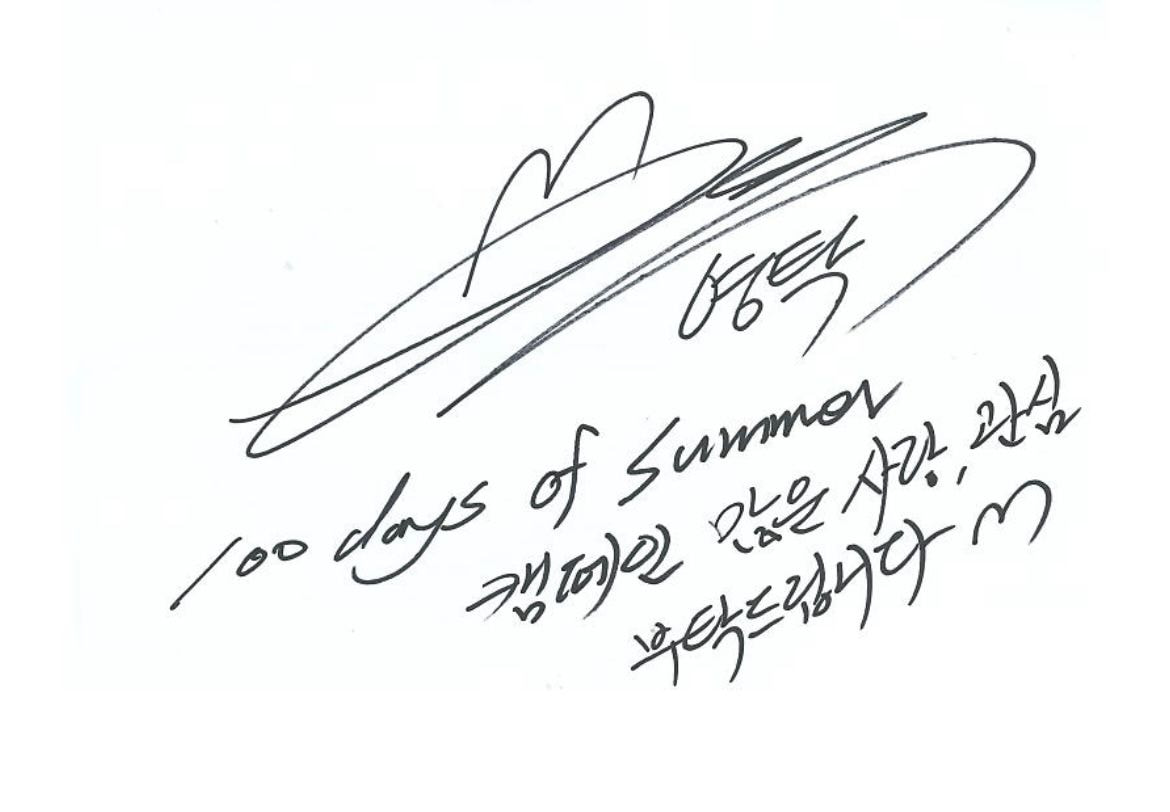 영탁
100 days of summer
캠페인 많은 사랑, 관심
부탁드립니다